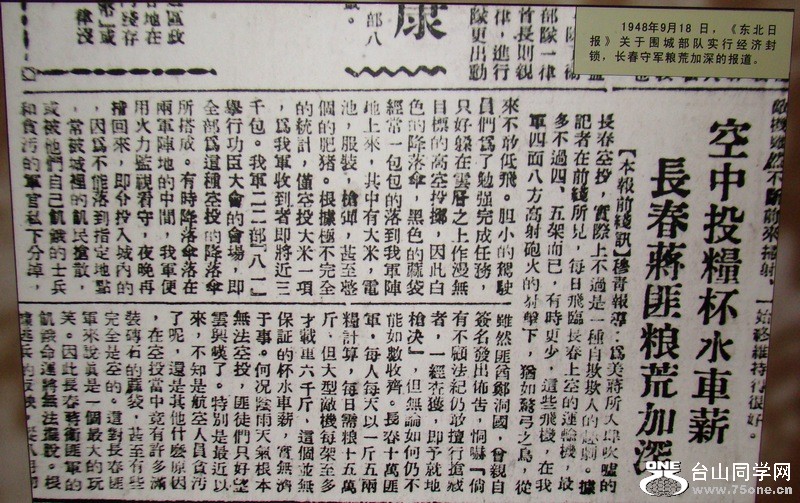 1948年9月18日,《东北日
报》关于围城部队实行经济封
锁,长春守军粮荒加深的报道。
始終維持得很好。
不斷前來掃射,
部隊一律
首長則親
律,進行
隊更出動
康
部八
區政
地在
空中投糧杯水車薪
長春蔣匪粮荒加深
【本報前綫訊】穆青報導:爲美蔣所大肆吹嘘的
長春空投,實際上不過是一種自欺欺人的醜劇。據
記者在前綫所見,每日飛臨長春上空的運輸機,最
多不過四、五架而已,有時更少,這些飛機,在我
軍四面八方高射砲火的射擊下,猶如驚弓之鳥,從
來不敢低飛。胆小的駕駛
員們爲了勉强完成任務,
只好躱在雲層之上作漫無
目標的高空投擲,因此白
色的降落傘,黑色的蔴袋
經常一包包的落到我軍陣
地上來,其中有大米,電
池,服裝,槍彈,甚至整
個的肥猪。根據極不完全
的統計,僅空投大米一項
,爲我軍收到者即將近三
千包。我軍二二部『八一』
舉行功臣大會的會場,即
全部爲這種空投的降落傘
所搭成。有時降落傘落在
兩軍陣地的中間,我軍便
用火力監視看守,夜晚再
搶回來,即令投入城內的
,因爲不能落到指定地點
,常被城裡的飢民搶散,
或被他們自己飢餓的士兵
和貪污的軍官私下分掉,
雖然匪酋鄭洞國,曾親自
簽名發出佈告,恫嚇「倘
有不顧法紀仍敢擅行搶藏
者,一經查獲,即予就地
槍决」,但無論如何仍不
能如數收齊。長春十萬匪
軍,每人每天以一斤五兩
糧計算,每日需粮十五萬
斤,但大型敵機每架至多
才載重六千斤,這個並無
保證的杯水車薪,實無濟
于事。何况陰雨天氣根本
無法空投,匪徒們只好望
雲興嘆了。特別是最近以
來,不知是航空人員貪污
了呢,還是其他什麼原因
,在空投當中竟有許多滿
裝磚石的蔴袋,甚至有些
完全是空的。這對長春匪
軍來說眞是一個最大的玩
笑。因此長春蔣衛匪軍的
飢餓命運將無法擺脫。根
ONE
台山同学网
www.75one.cn